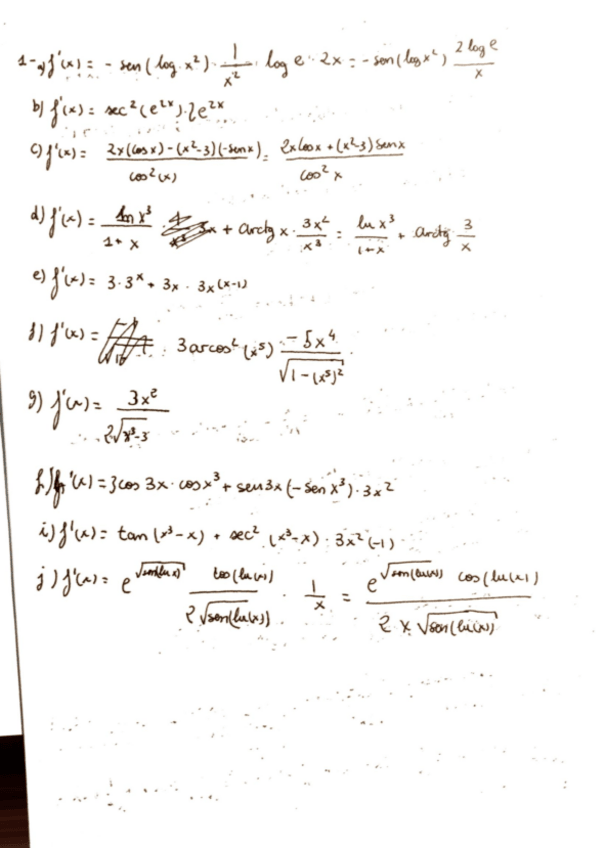 1-a) f'(x) = - sen(log x²) · 1/x² · log e · 2x = - sen(log x²) 2 log e/x
b) f'(x) = sec²(e²ˣ)·2e²ˣ
c) f'(x) = (2x(cos x) - (x²-3)(-sen x))/cos²(x) = (2x cos x + (x²-3) sen x)/cos² x
d) f'(x) = ln x³/(1+x) + arctg x · 3x²/x³ = ln x³/(1+x) + arctg 3/x
e) f'(x) = 3·3ˣ + 3x · 3x(x-1)
f) f'(x) = 3 arcos²(x⁵) · -5x⁴/√(1-(x⁵)²)
g) f'(x) = 3x²/(2√(x³-3))
h) f'(x) = 3 cos 3x · cos x³ + sen 3x (- sen x³) · 3x²
i) f'(x) = tan(x³-x) + sec² (x³-x) · 3x²(-1)
j) f'(x) = e^√(sen(ln x)) cos(ln(x))/(2√(sen(ln(x)))) · 1/x = e^√(sen(ln(x))) cos(ln(x))/(2x√(sen(ln(x))))